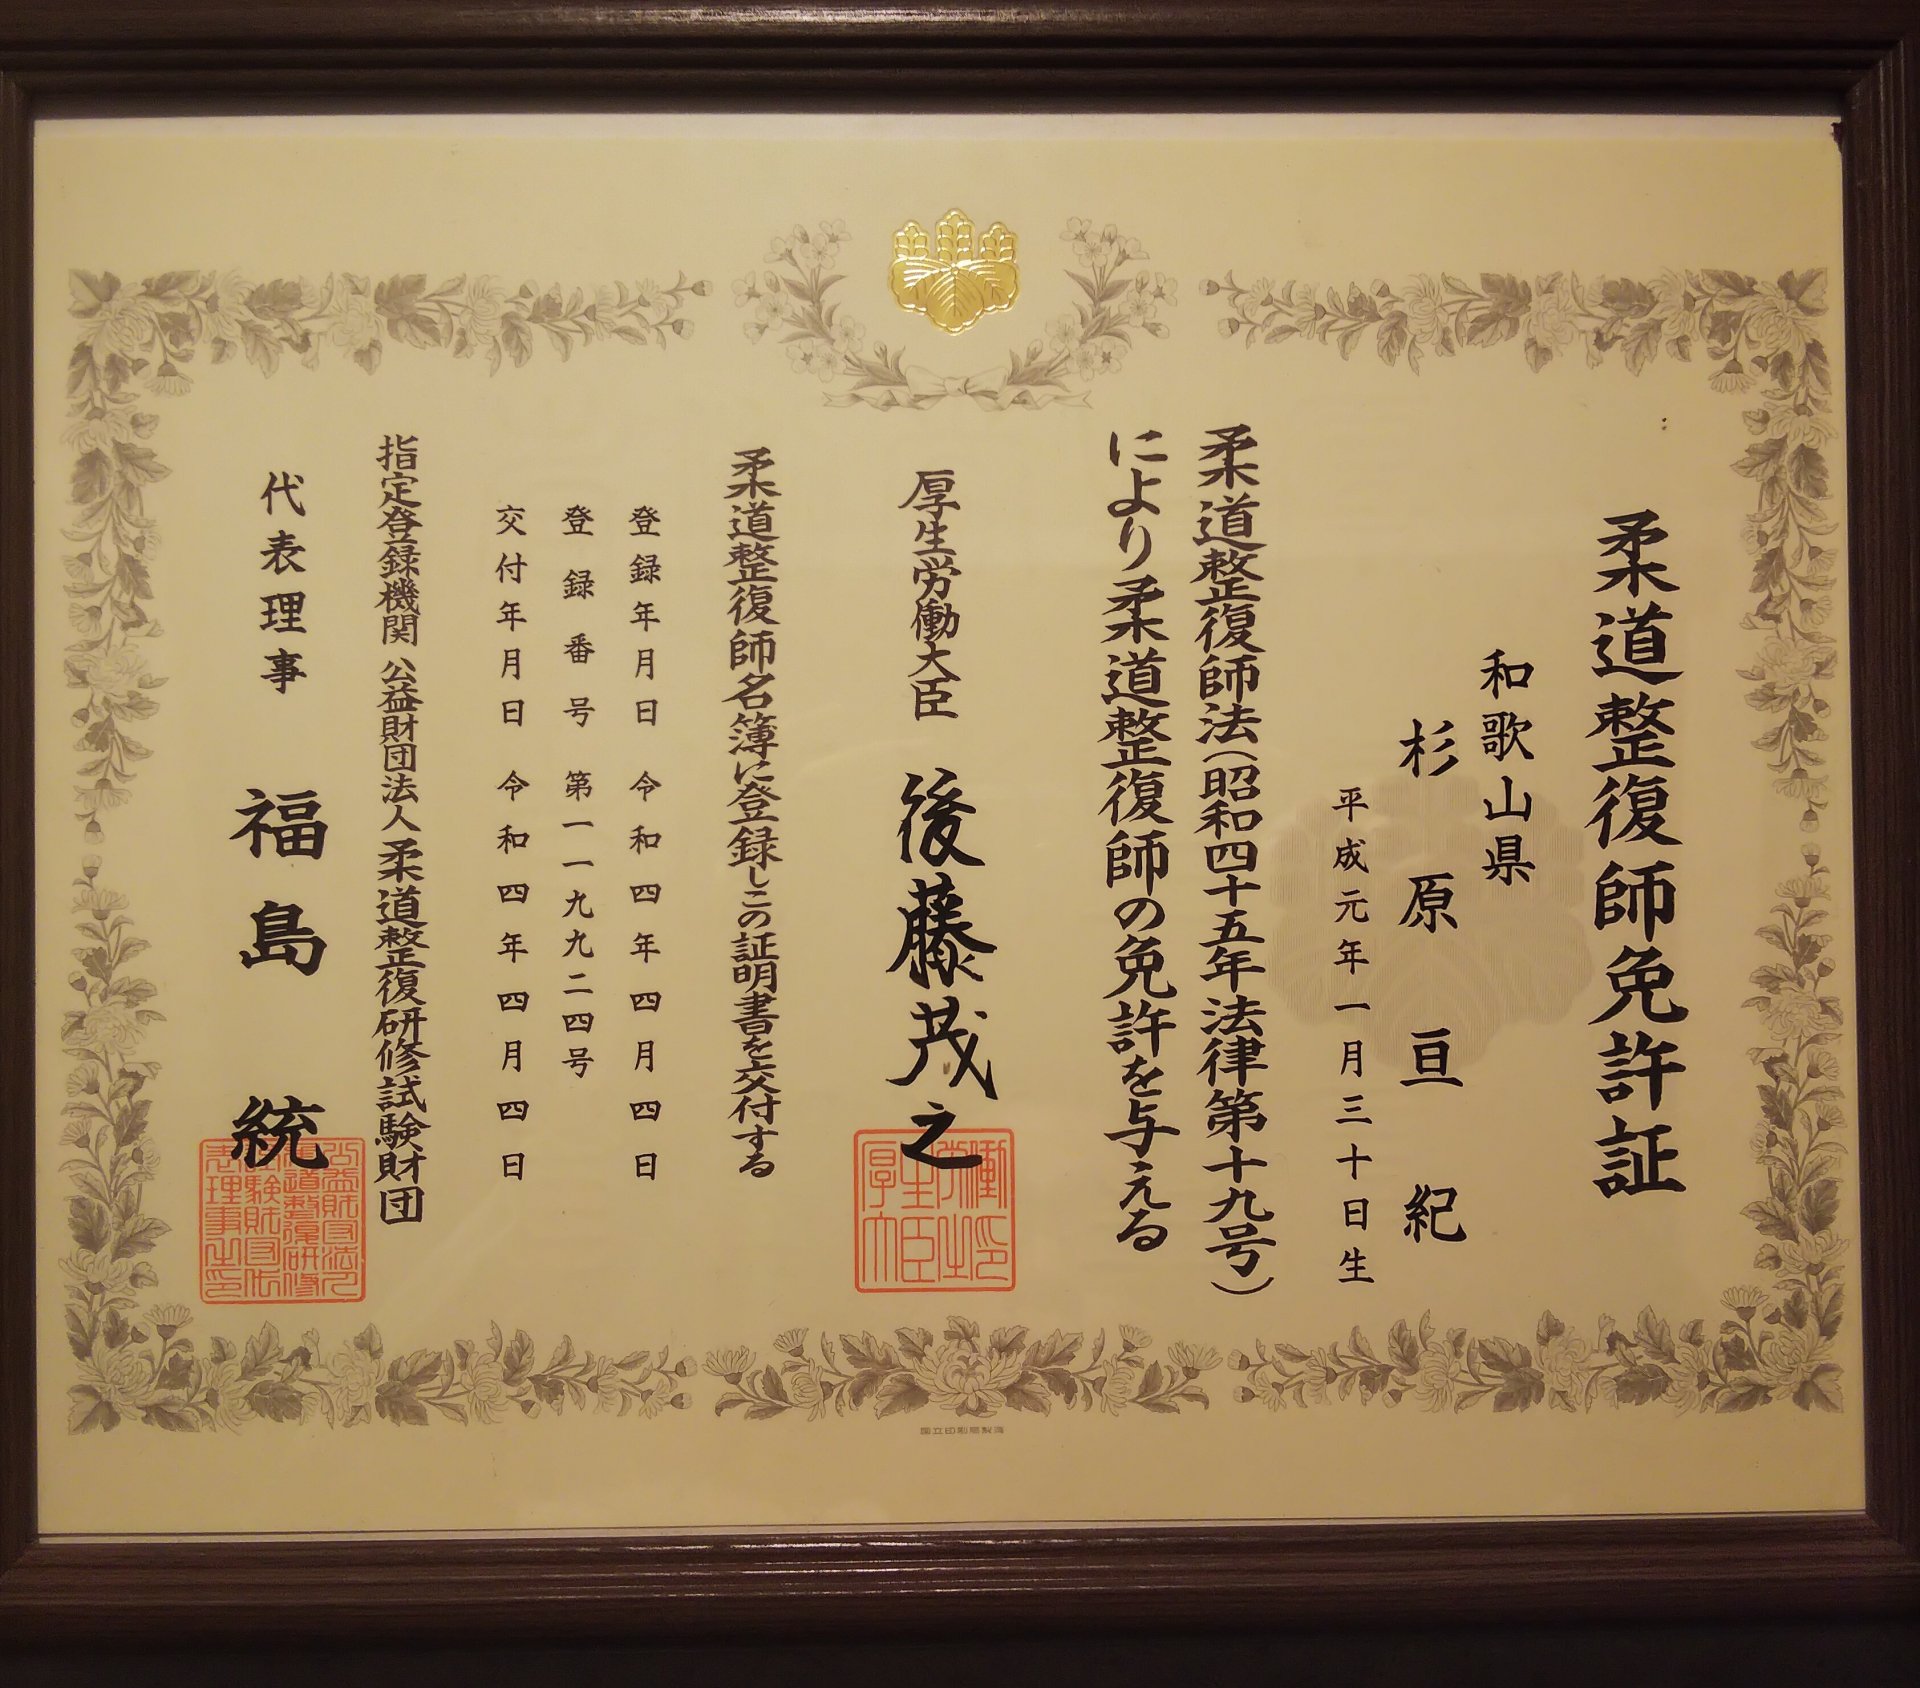 柔道整復師免許証
和歌山県
杉原亘紀
平成元年一月三十日生
柔道整復師法（昭和四十五年法律第十九号）
により柔道整復師の免許を与える
厚生労働大臣 後藤茂之
柔道整復師名簿に登録しこの証明書を交付する
登録年月日 令和四年四月四日
登録番号 第一一九九二四号
交付年月日 令和四年四月四日
指定登録機関 公益財団法人 柔道整復研修試験財団
代表理事 福島統
国立印刷局製造